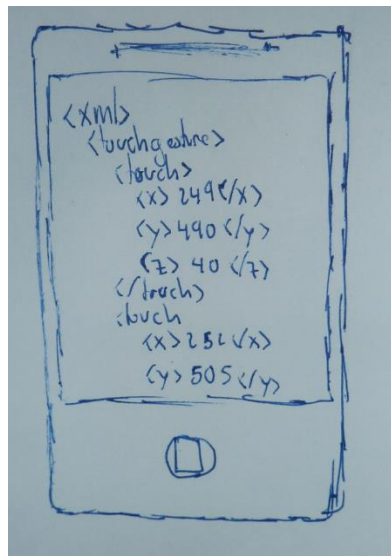 <xml>
<touchgesture>
<touch>
<x> 249 </x>
<y> 490 </y>
<z> 40 </z>
</touch>
<touch
<x> 252 </x>
<y> 505 </y>